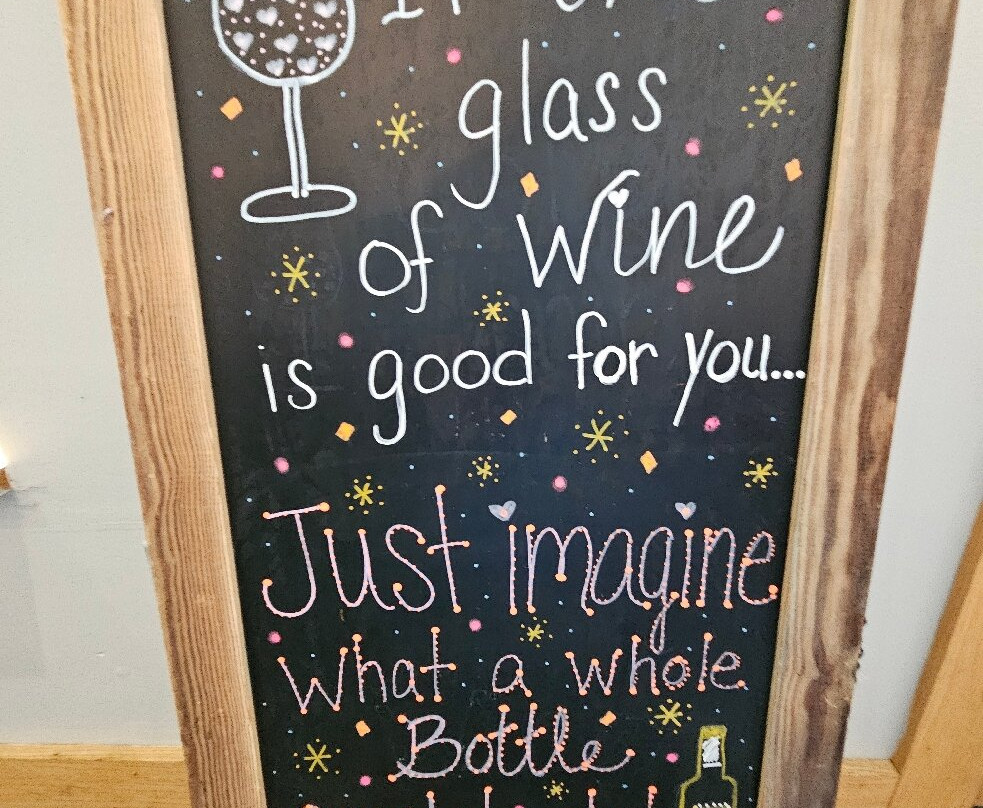 glass
of wine
is good for you...
Just imagine
what a whole
Bottle